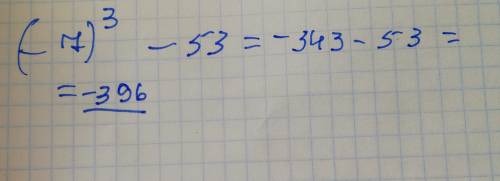 (-7)³ - 53 = -343 - 53 =
= -396